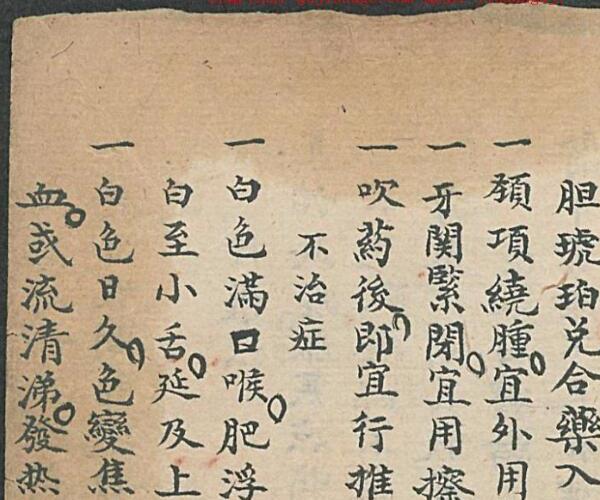 胆琥珀兑合藥入
一頸項繞腫。宜外用
一牙関緊閉。宜用擦
一吹药後即宜行推
不治症
一白色滿口喉。肥浮
白至小舌。延及上
一白色日久。色變焦
血。或流清涕。發热